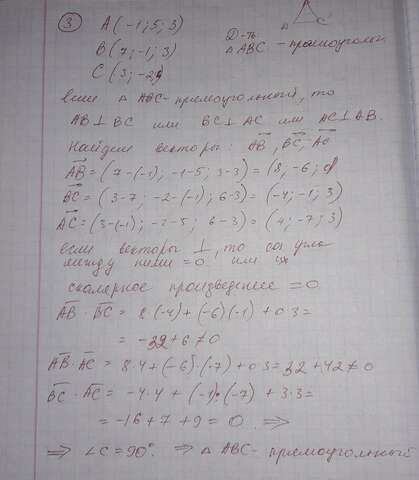 3 A(-1; 5; 3)
B(7; -1; 3)
C(3; -2;
Д-ть
△ABC - прямоугольн
A C
если △ ABC - прямоугольный, то
AB ⊥ BC или BC ⊥ AC или AC ⊥ AB.
Найдем векторы: AB, BC, AC
AB = (7-(-1); -1-5; 3-3) = (8; -6; 0)
BC = (3-7; -2-(-1); 6-3) = (-4; -1; 3)
AC = (3-(-1); -2-5; 6-3) = (4; -7; 3)
если векторы ⊥, то cos угла
между ними = 0 или их
скалярное произведение = 0
AB · BC = 8·(-4) + (-6)(-1) + 0·3 =
= -32+6 ≠ 0
AB · AC = 8·4 + (-6)·(-7) + 0·3 = 32 + 42 ≠ 0
BC · AC = -4·4 + (-1)·(-7) + 3·3 =
= -16 + 7 + 9 = 0 ⇒
⇒ ∠C = 90°. ⇒ △ ABC - прямоугольный